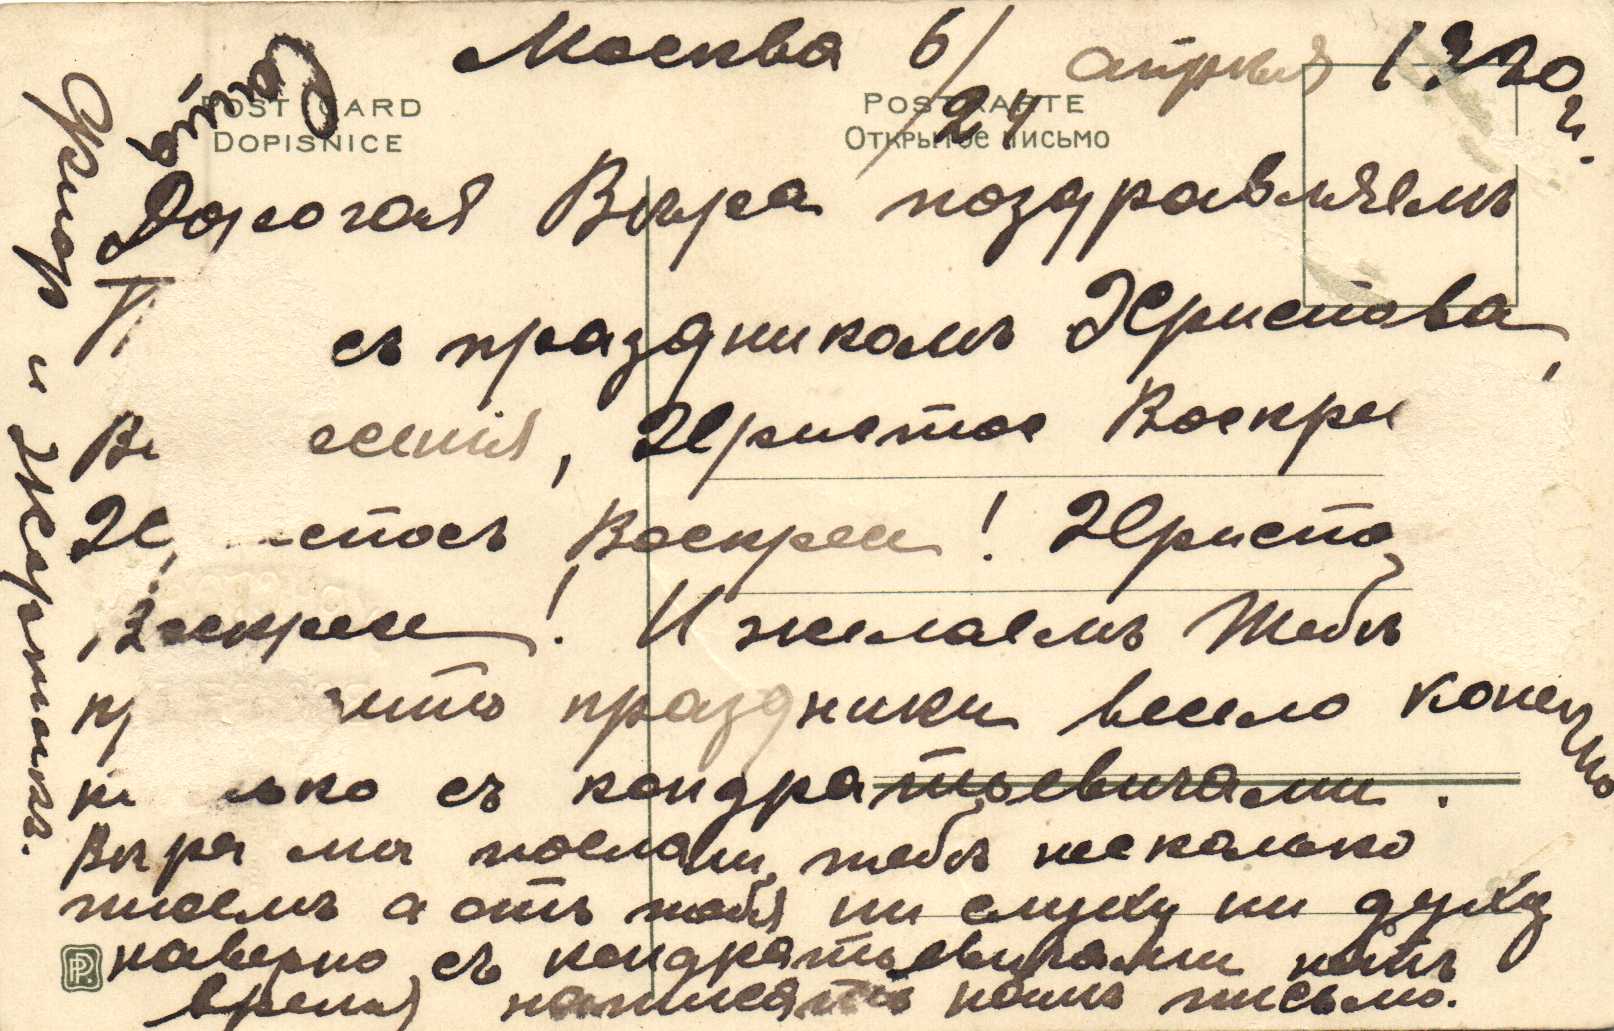 Москва 6/24 апреля 1920 г.
POST CARD
DOPISNICE
POSTKARTE
Открытое письмо
Дорогая Вѣра поздравляемъ
съ праздникомъ Христова,
есенія, Христос Воскре
стосъ Воскресе! Христо
Воскресе! И желаемъ Тебѣ
праздники весело конечно
только съ кондратьевичами.
Вѣра мы послали тебѣ несколько
писемъ а отъ тебя ни слуху ни духу
наверно съ кондратьевичами нѣтъ
время написать намъ письмо.
и